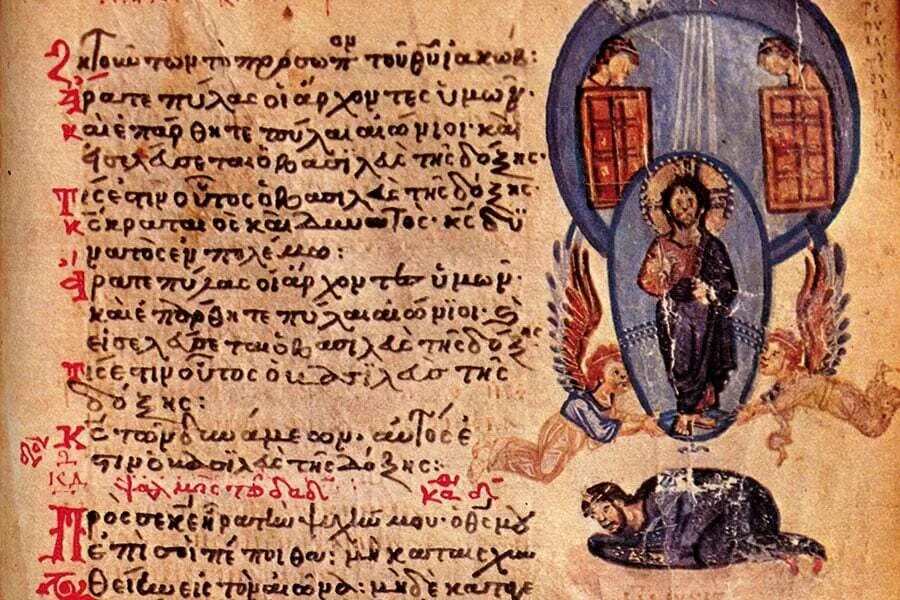 ζητούντων το πρόσωπον τοῦ θῦ ἰακώβ:
Ἄρατε πύλας οἱ ἄρχοντες ὑμῶν·
καὶ ἐπάρθητε πύλαι αἰώνιοι· καὶ
εἰσελεύσεται ὁ βασιλεὺς τῆς δόξης·
Τίς ἐστιν οὗτος ὁ βασιλεὺς τῆς δόξης·
κς κραταιὸς καὶ δυνατός· κς δυ
νατὸς ἐν πολέμω:
Ἄρατε πύλας οἱ ἄρχοντες ὑμῶν·
καὶ ἐπάρθητε πύλαι αἰώνιοι· καὶ
εἰσελεύσεται ὁ βασιλεὺς τῆς δόξης
Τίς ἐστιν οὗτος ὁ βασιλεὺς τῆς
δόξης:
Κς τῶν δυνάμεων· αὐτός ἐ
στιν ὁ βασιλεὺς τῆς δόξης:
ΚΔ ψαλμὸς τῶ δαδ
Πρὸς σὲ κε ἦρα τὴν ψυχήν μου· ὁ θς μου
ἐπὶ σοὶ πέποιθα: μὴ καταισχυν
θείην εἰς τὸν αἰῶνα: μηδὲ καταγε